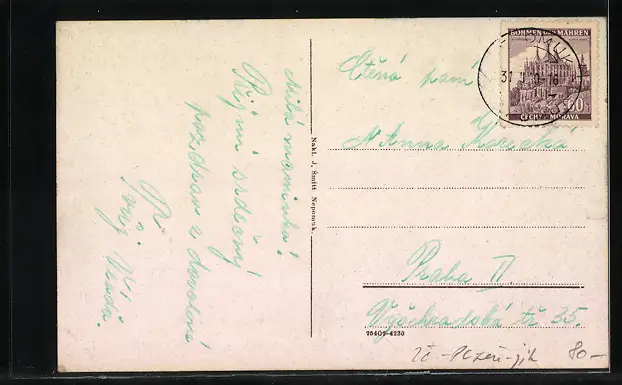 Milá maminko!
Přijmi srdečný
pozdrav z dovolené
Tvůj Vláďa.
Nakl. J. Šmitt Nepomuk.
BÖHMEN UND MÄHREN
60
ČECHY A MORAVA
31
Ctěná paní
Anna
Praha II.
Vyšehradská tř 35.
75407-4230
80-